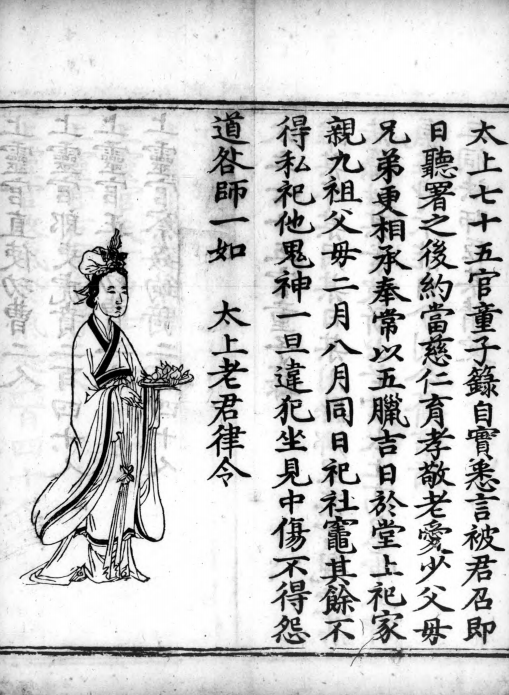 太上七十五官童子籙自實悉言被君召即
日聽署之後約當慈仁育孝敬老愛少父母
兄弟更相承奉常以五臘吉日於堂上祀家
親九祖父母二月八月同日祀社竈其餘不
得私祀他鬼神一旦違犯坐見中傷不得怨
道咎師一如　太上老君律令